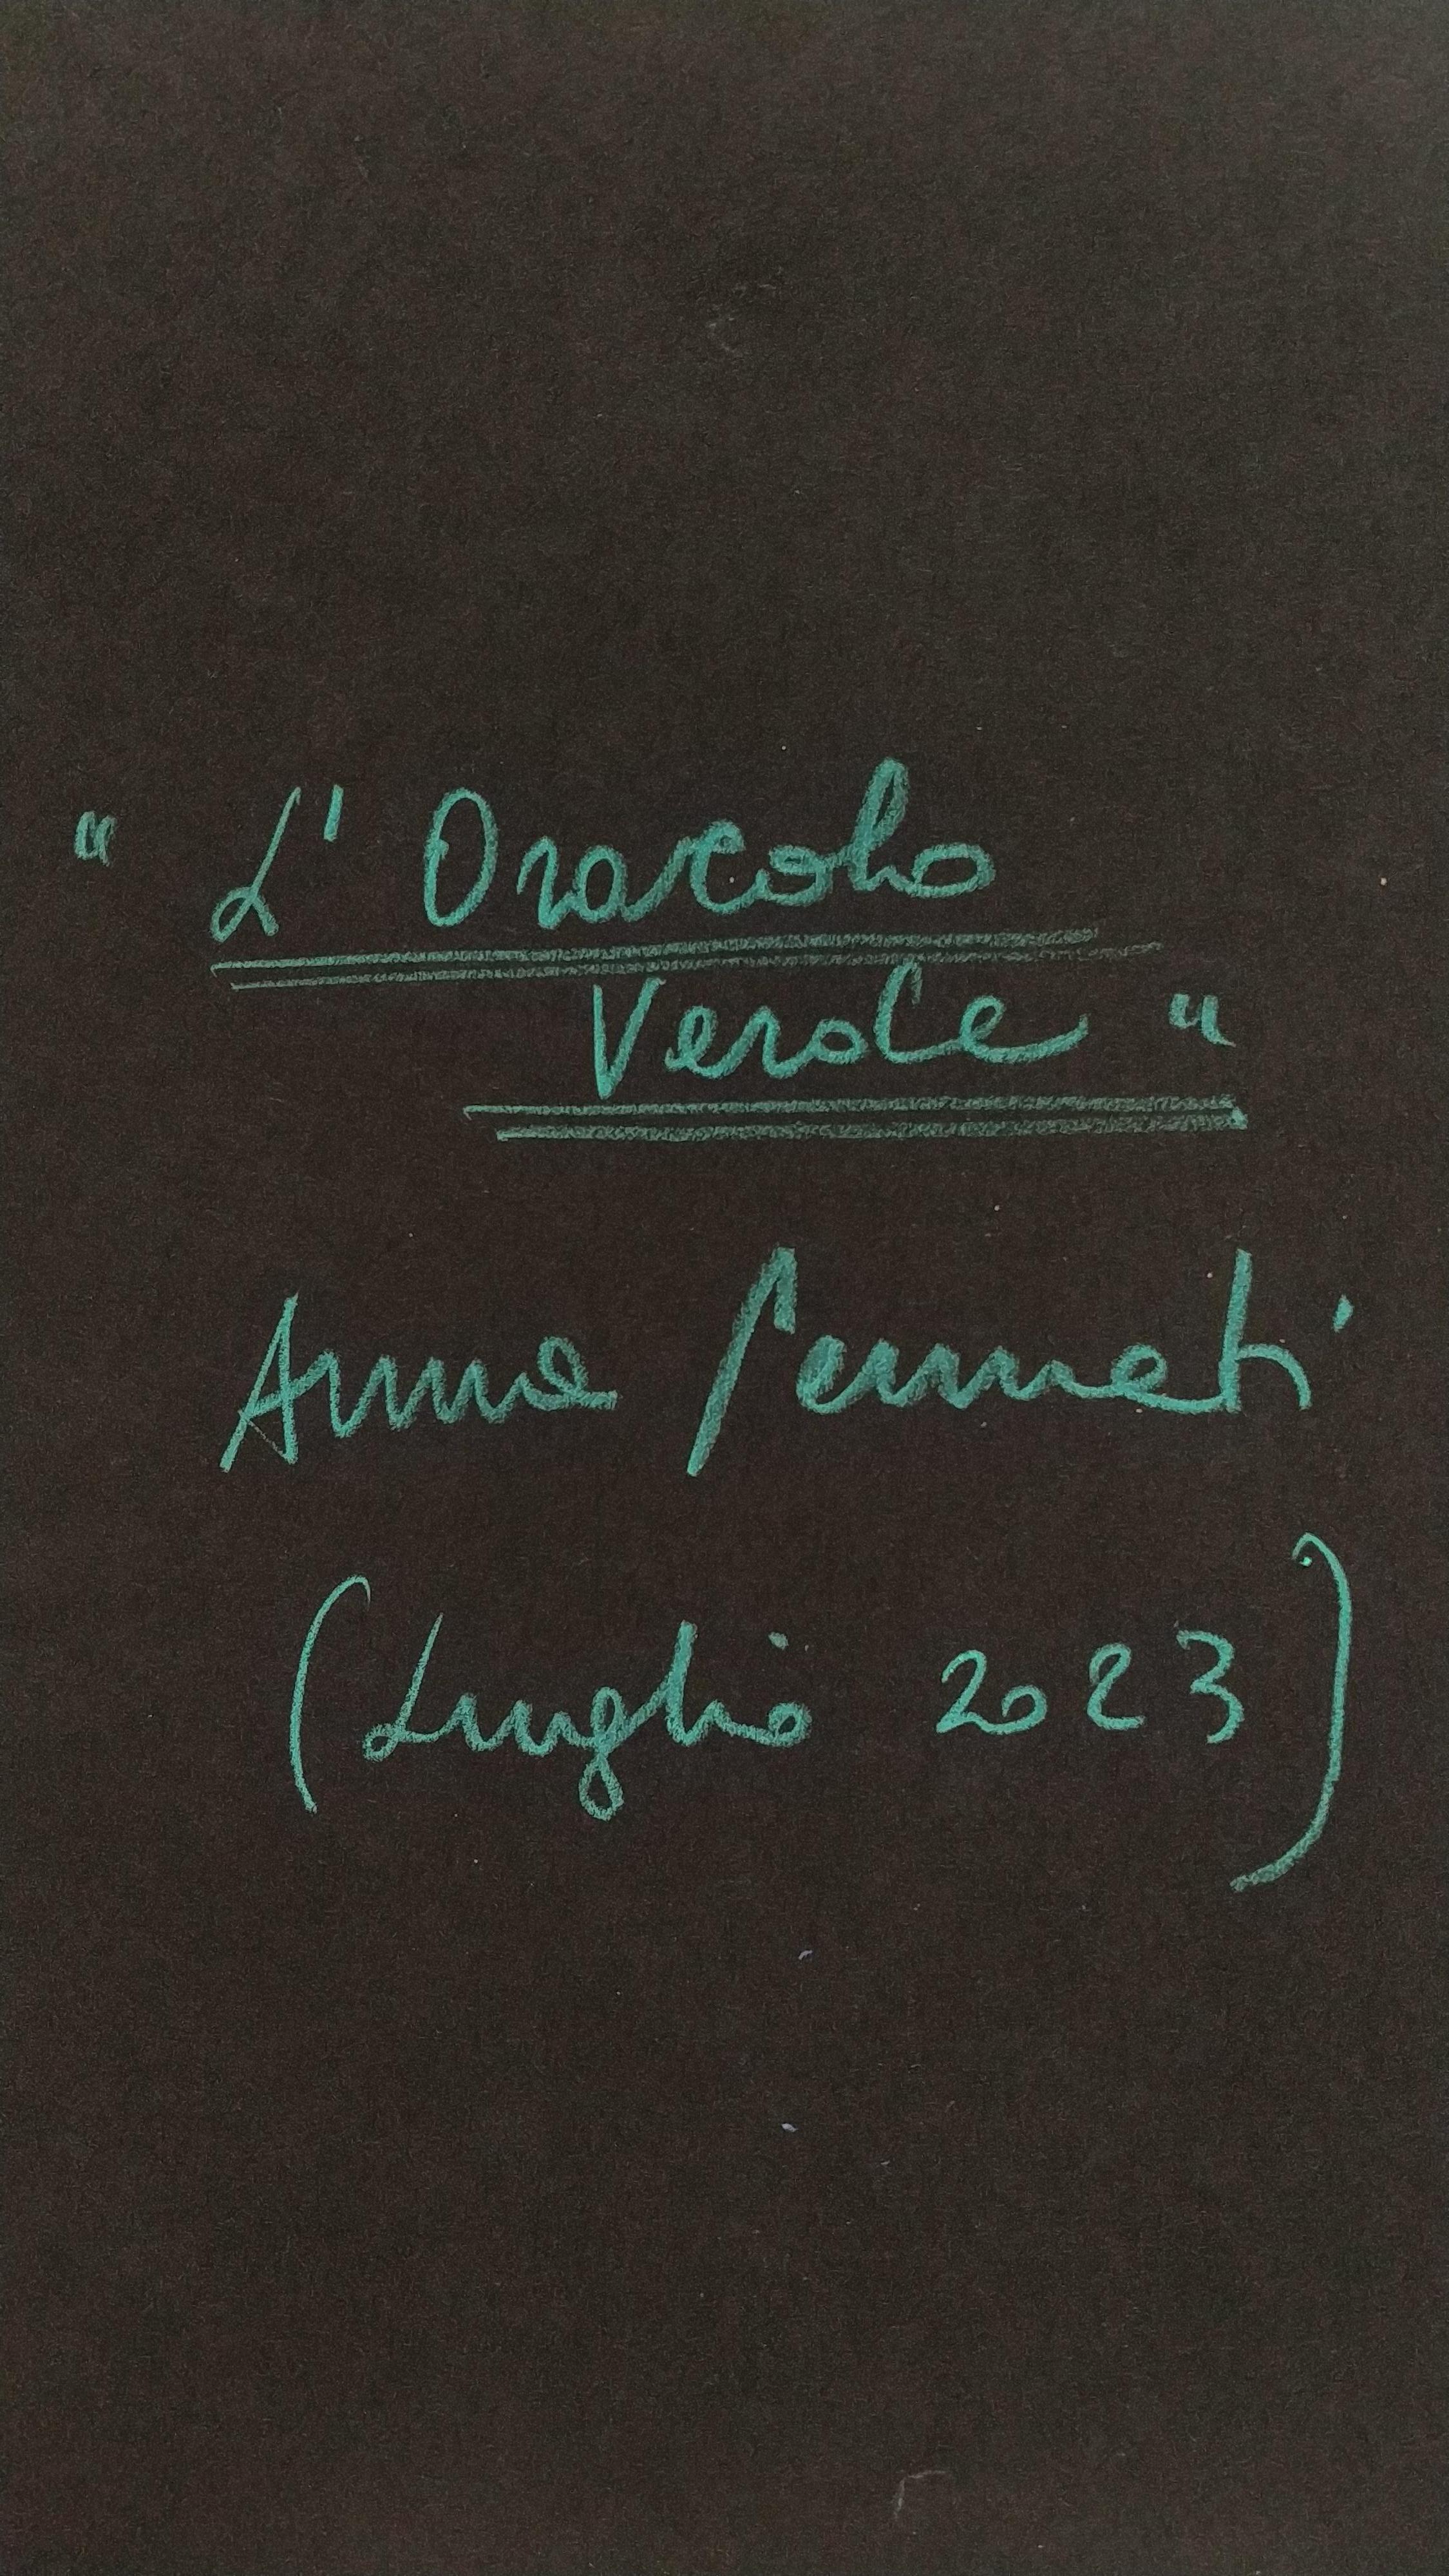 "L'Oracolo
Verde"
Anna Pennati
(Luglio 2023)